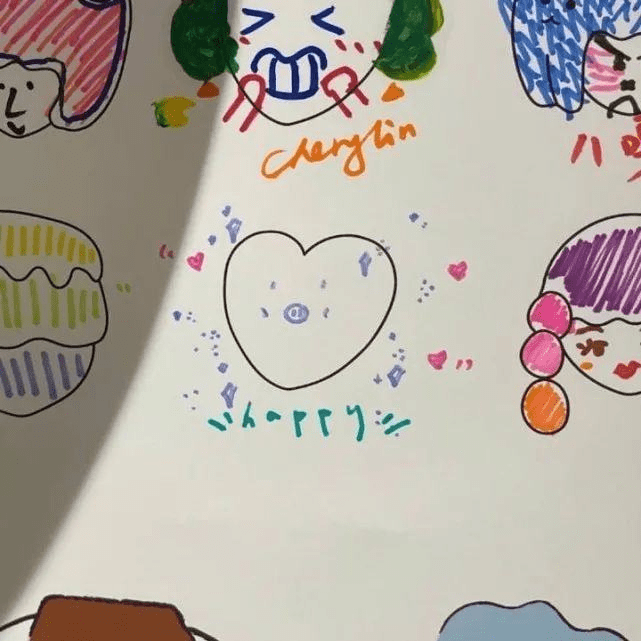 Cherylin
八
happy